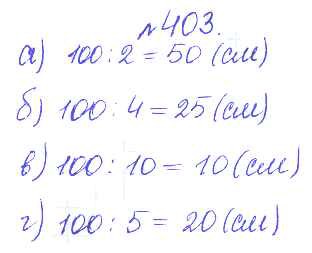 №403.
а) 100 : 2 = 50 (см)
б) 100 : 4 = 25 (см)
в) 100 : 10 = 10 (см)
г) 100 : 5 = 20 (см)